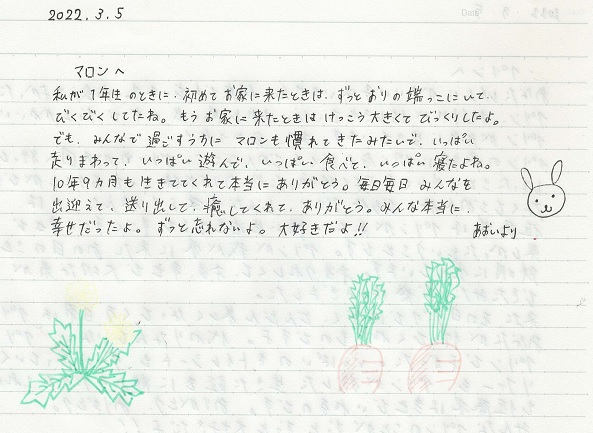 2022.3.5
マロンへ
私が1年生のときに、初めてお家に来たときは、ずっとおりの端っこにいて、
びくびくしてたね。もうお家に来たときはけっこう大きくてびっくりしたよ。
でも、みんなで過ごすうちに マロンも慣れてきたみたいで、いっぱい
走りまわって、いっぱい遊んで、いっぱい食べて、いっぱい寝たよね。
10年9カ月も生きててくれて本当にありがとう。毎日毎日 みんなを
出迎えて、送り出して、癒してくれて、ありがとう。みんな本当に、
幸せだったよ。ずっと忘れないよ。大好きだよ!!
あおいより